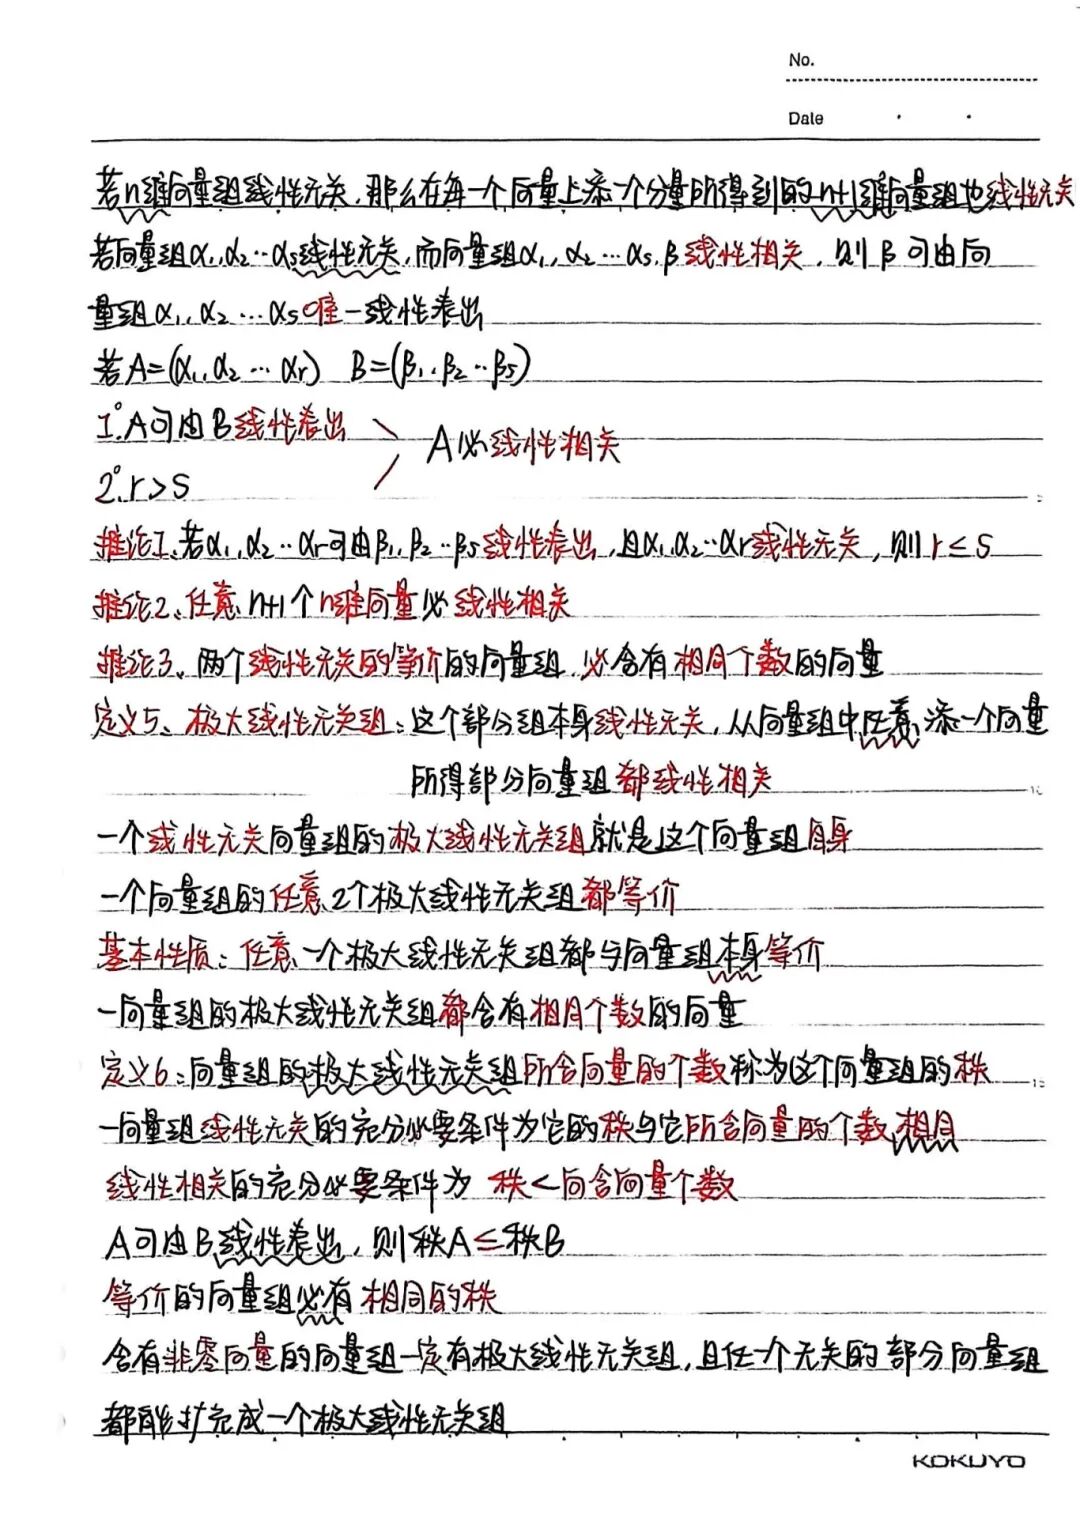 No.
Date
若n维向量组线性无关,那么在每一个向量上添一个分量所得到的n+1维向量组也线性无关
若向量组α₁,α₂…αs线性无关,而向量组α₁,α₂…αs,β线性相关,则β可由向
量组α₁,α₂…αs唯一线性表出
若A=(α₁,α₂…αr) B=(β₁,β₂…βs)
1°.A可由B线性表出
A必线性相关
2°.r>s
推论1、若α₁,α₂…αr可由β₁,β₂…βs线性表出,且α₁,α₂…αr线性无关,则r≤s
推论2、任意n+1个n维向量必线性相关
推论3、两个线性无关的等价的向量组,必含有相同个数的向量
定义5、极大线性无关组:这个部分组本身线性无关,从向量组中任意添一个向量
所得部分向量组都线性相关
一个线性无关向量组的极大线性无关组就是这个向量组自身
一个向量组的任意2个极大线性无关组都等价
基本性质:任意一个极大线性无关组都与向量组本身等价
一向量组的极大线性无关组都含有相同个数的向量
定义6:向量组的极大线性无关组所含向量的个数称为这个向量组的秩
一向量组线性无关的充分必要条件为它的秩与它所含向量的个数相同
线性相关的充分必要条件为 秩<向含向量个数
A可由B线性表出,则秩A≤秩B
等价的向量组必有相同的秩
含有非零向量的向量组一定有极大线性无关组,且任一个无关的部分向量组
都能扩充成一个极大线性无关组
KOKUYO